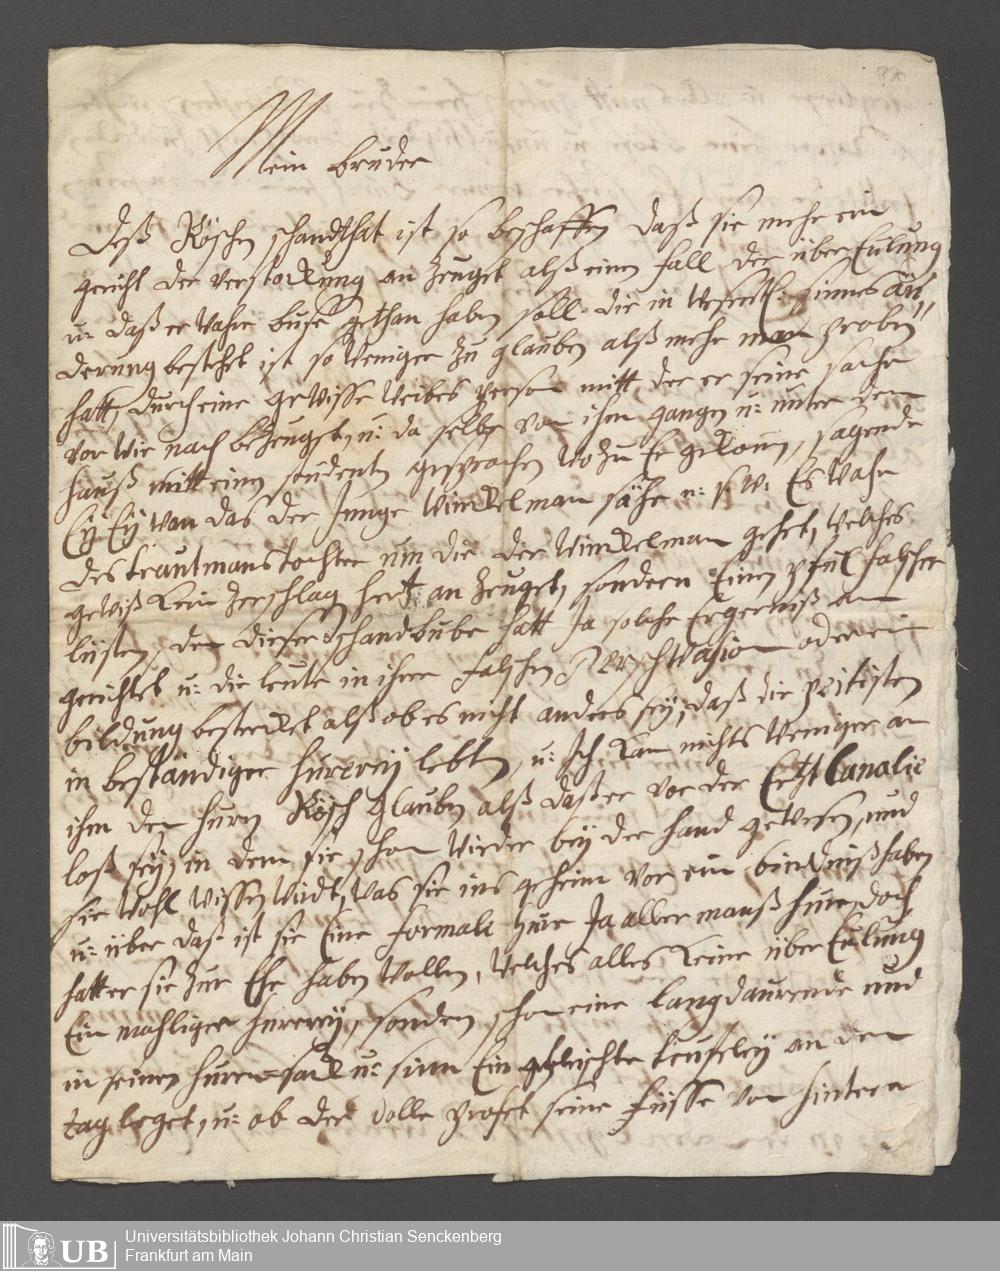 Mein bruder
Deß Röschen schandthat ist so beschaffen daß sie mehr ein
gericht der verstockung an zeuget alß einen fall der über Eulung
u: daß er wahre buße gethan haben soll die in sinnes än
derung bestehet ist so weniger zu glauben alß mehr man proben
hatt, durch eine gewisse weibes person mitt der er seine sache
vor wie nach bezeuget, u: da selbe von ihm gangen u: unter dem
hauß mitt einen studenten gesprochen wo zu Er gekomen, sagende
Ey Ey wan das der Junge winckelman sähe u: s w: Es wahr
des trautmans tochter um die der winckelman gehet, welches
gewiß kein zerschlagen hertz an zeuget, sondern Einen pful falscher
lüsten, den dieser schandbube hatt Ja solche Ergerniß an
gerichtet u: die leute in ihrer falschen oder ein
bildung bestercket alß ob es nicht anders sey, daß die pietisten
in beständiger hurerey lebten, u: Ich kan nichts weniger an
ihm den hurer Rösch glauben alß daß er von der Ertz Canalie
loß sey, in dem sie schon wieder bey der hand gewesen, und
sie wohl wissen wirdt, was sie ins geheim vor ein bündniß haben
u: über daß ist sie Eine formale hure Ja aller manß hure, doch
hatt er sie zur Ehe haben wollen, welches alles keine über Eulung
Ein mahliger hurerey, sondern schon eine langdaurende und
in seinen huren sack u: sinn Ein teufeley an den
tag leget, u: ob der volle profet seine füsse von hintern
Universitätsbibliothek Johann Christian Senckenberg
UB Frankfurt am Main